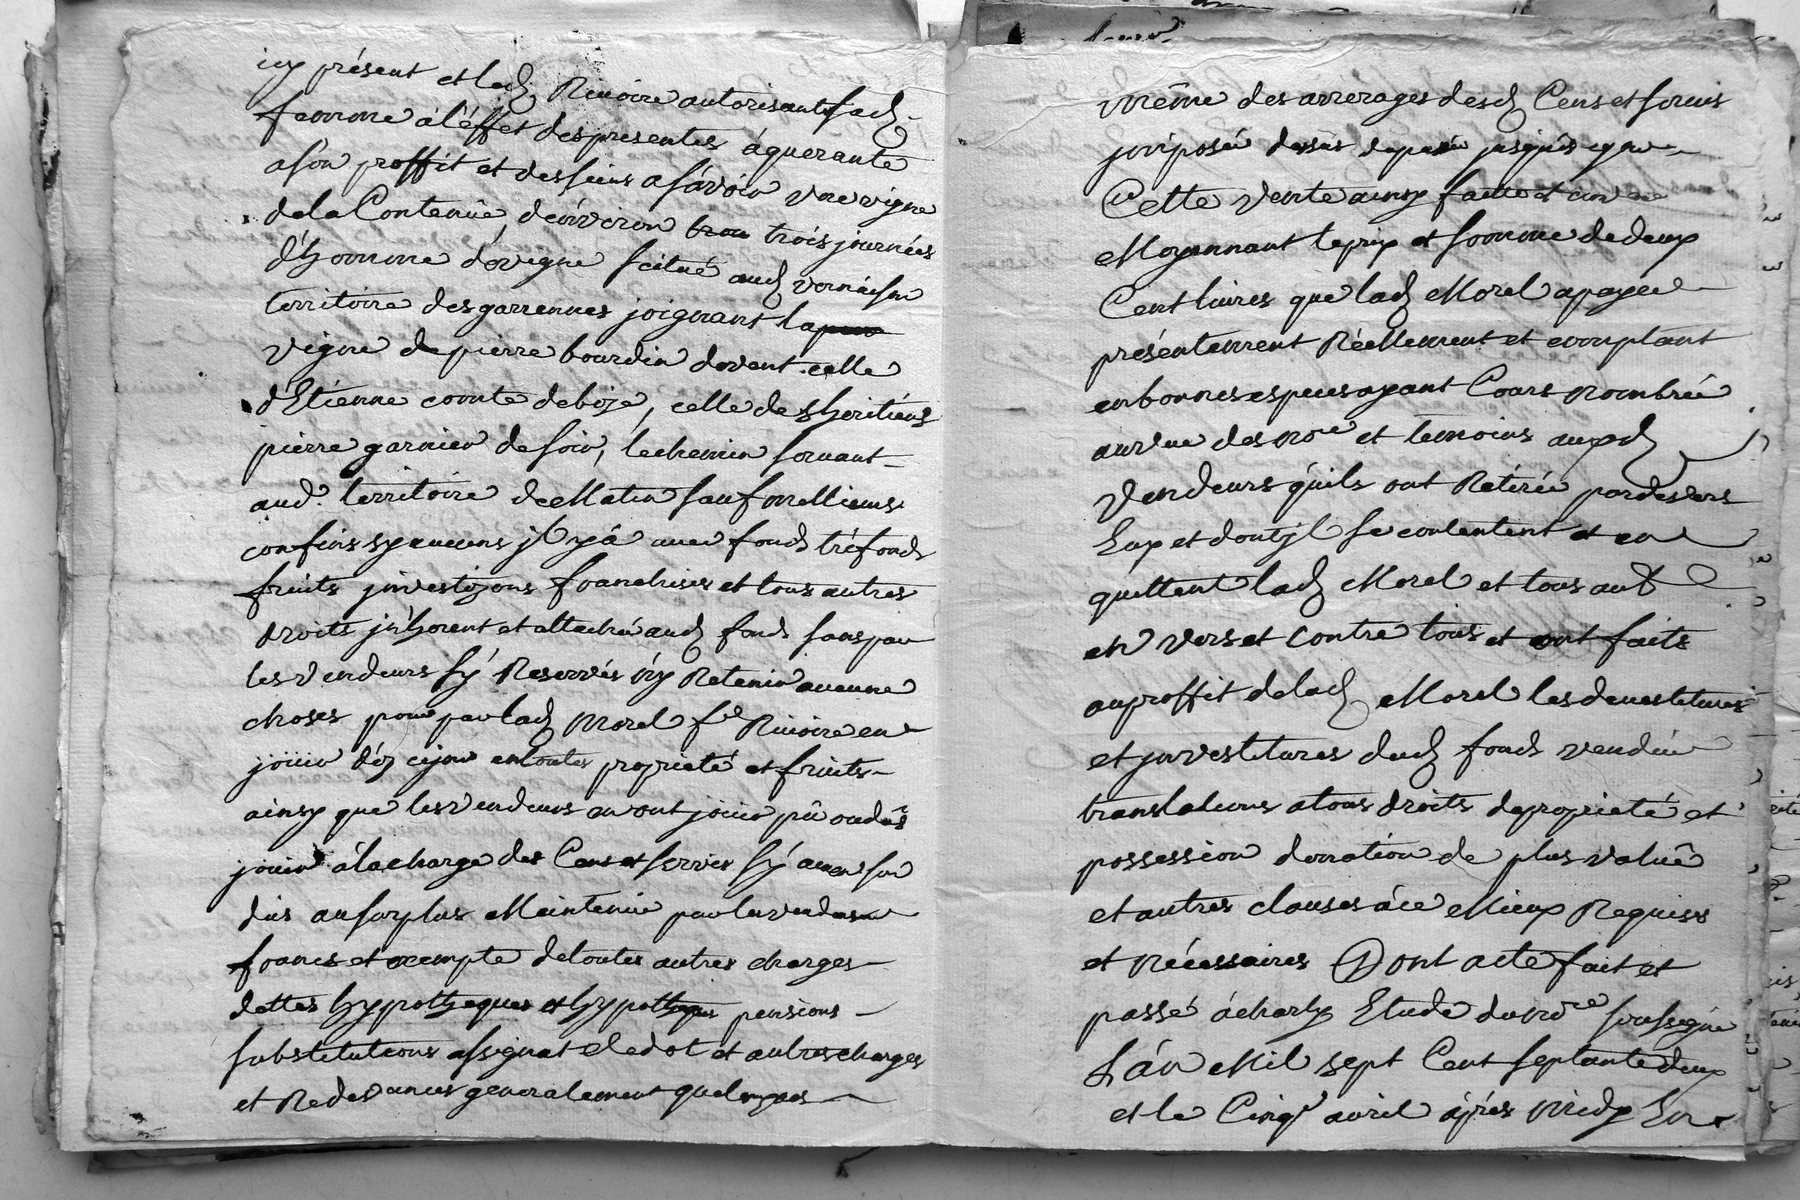 icy présent et lad. Rivoire autorisant sad.
femme à l'éffet des presentes âquerante
a son proffit et des siens a sâvoir une vigne
de la Contenüe d'environ trois journées
d'homme dévigne scitué aud. vernaison
territoire des garrennes joignant la
vigne de pierre bourdin devent celle
d'Etienne comte de boze, celle des heritiers
pierre garnier de soir, le chemin
aud. territoire de Matin sauf meilleurs
confins sy aucuns jl y â avec fonds tréfonds
fruits jnvestizons franchises et tous autres
droits jnhérent et attaché aud. fonds sans par
les vendeurs s'y Reservés n'y Retenir aucune
choses pour par lad. Morel fe Rivoire en
joüir déz cejour en toutes proprieté et fruits
ainsy que les vendeurs en ont joüir pû ou dûs
joüir â la charge des Cens et servis s'y aucun son
dûs au surplus Maintenüe par les vendeurs
francs et exempte de toutes autres charges
dettes hypotheques pensions
substitutions assignat de dot et autres charges
et Redevances generalement quelconques
même des arrérages desd. Cens et servis
jusques a ce jour
Cette vente ainsy faitte et convenue
Moyennant le prix et somme de deux
Cent livres que lad. Morel a payée
présentement Réellement et comptant
en bonnes especes ayant Cours nombrée
au vue des nore et temoins auxd.
Vendeurs qu'ils ont Retirée pardevers
Eux et dont jl se contentent et en
quittent lad. Morel et tous aut
en vers et contre tous et ont faits
au proffit de lad. Morel les devestitures
et jnvestitures dud. fonds vendu
translations a tous droits de propriete et
possession donation de plus valuë
et autres clauses âce Mieux Requises
et Nécessaires Dont acte fait et
passé â charly Etude du nore soussigné
L'ân Mil sept Cent septante deux
et le Cinq avril âprés Midy Lec